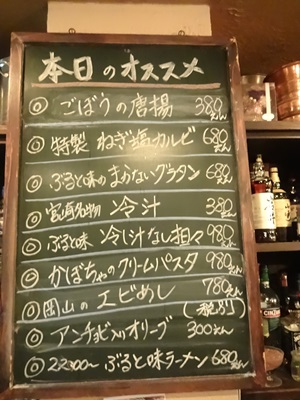 本日のオススメ
◎ ごぼうの唐揚 380えん
◎ 特製 ねぎ塩カルビ 680えん
◎ ぶると味のまかないグラタン 680えん
◎ 宮崎名物 冷汁 380えん
◎ ぶると味 冷し汁なし担々 980えん
◎ かぼちゃのクリームパスタ 980えん
◎ 岡山の エビめし 780えん
(税別)
◎ アンチョビ入りオリーブ 300えん
◎ 22:00〜 ぶると味ラーメン 680えん